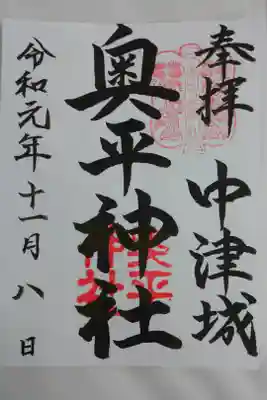 奉拝
中津城
奥平神社
令和元年十一月八日